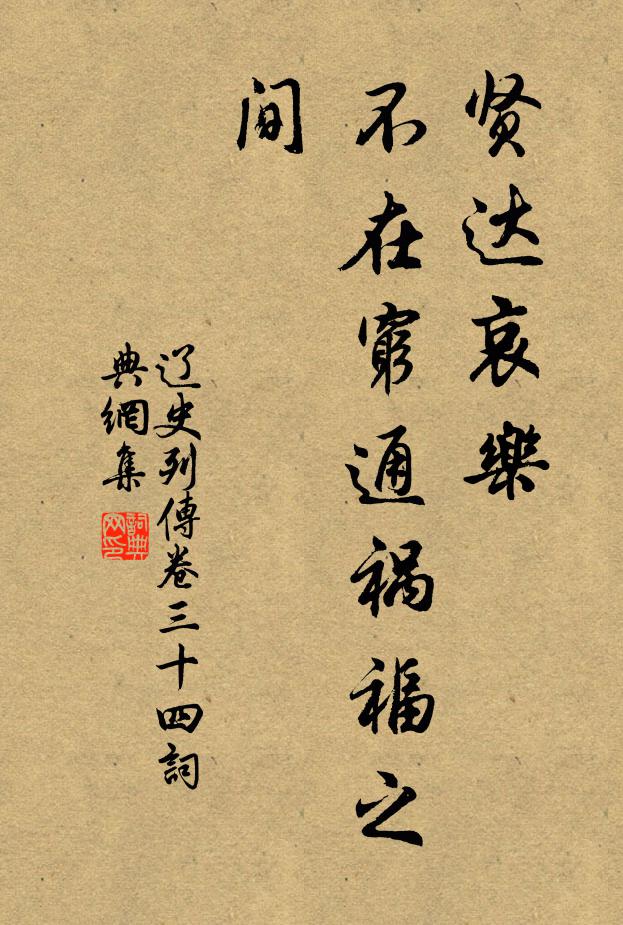 贤达哀樂
不在窮通祸福之
间
辽史列傳卷三十四詞
典網集
詞典
网印